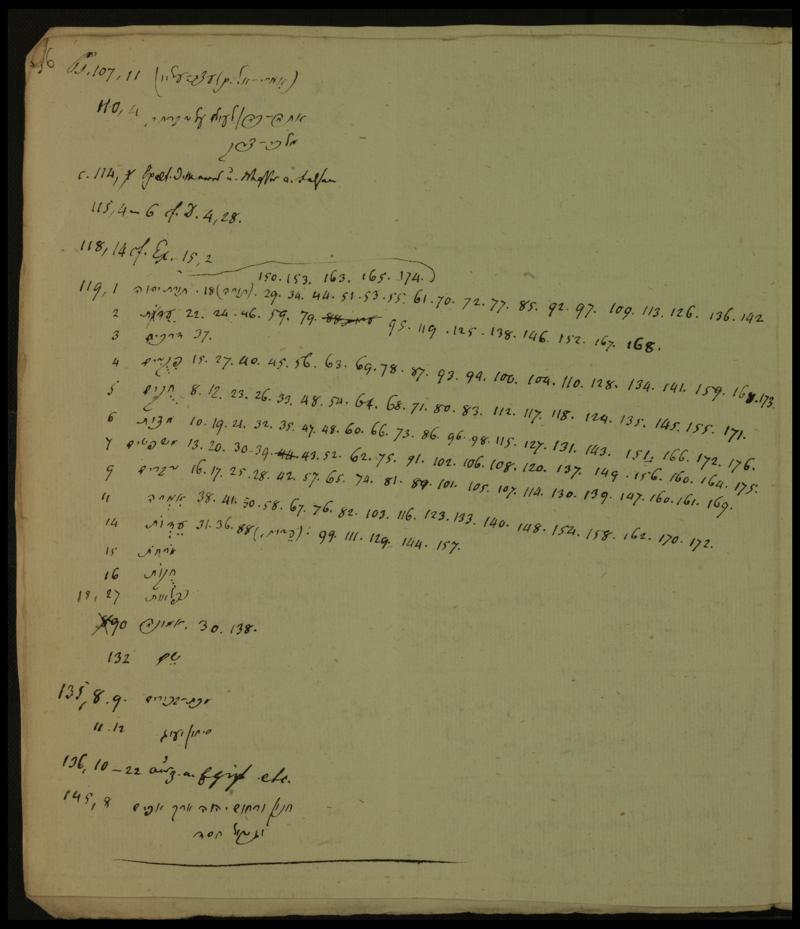 Ps. 107, 11 (אמרי-אל. ועצת עליון)
110, 4
מלכי-צדק
c. 114,
115, 4-6 cf. D. 4, 28.
118, 14 cf. Ex. 15, 2
150. 153. 163. 165. 174.)
119, 1 תורת יהוה. 18 (תורה). 29. 34. 44. 51. 53. 55. 61. 70. 72. 77. 85. 92. 97. 109. 113. 126. 136. 142
2 עֵדוֹת 22. 24. 46. 59. 79. 95. 119. 125. 138. 146. 152. 167. 168.
3 דרכים 37.
4 פִּקֻּדִים 15. 27. 40. 45. 56. 63. 69. 78. 87. 93. 94. 100. 104. 110. 128. 134. 141. 159. 168. 173
5 חֻקִּים 8. 12. 23. 26. 33. 48. 54. 64. 68. 71. 80. 83. 112. 117. 118. 124. 135. 145. 155. 171.
6 מצות 10. 19. 21. 32. 35. 47. 48. 60. 66. 73. 86. 96. 98. 115. 127. 131. 143. 151. 166. 172. 176.
7 משפטים 13. 20. 30. 39. 44 43. 52. 62. 75. 91. 102. 106. 108. 120. 137. 149. 156. 160. 164. 175.
9 דברים 16. 17. 25. 28. 42. 57. 65. 74. 81. 89. 101. 105. 107. 114. 130. 139. 147. 160. 161. 169.
11 אִמְרָה 38. 41. 50. 58. 67. 76. 82. 103. 116. 123. 133. 140. 148. 154. 158. 162. 170. 172.
14 עֵדְוֹת 31. 36. 88 (ברית). 99. 111. 129. 144. 157.
15 ארחת
16 חֻקּוֹת
18, 27 נפלאות
90 אמונה. 30. 138.
132 שֵׁם
135, 8. 9. מכת-בכורים
11. 12 סיחון ועוג
136, 10-22 etc.
145, 8 חנון ורחום יהוה ארך אפים
וגדול חסד